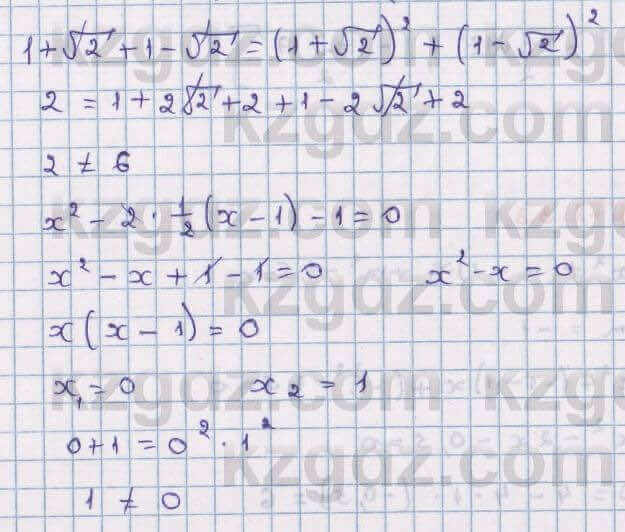 1 + √2 + 1 - √2 = (1 + √2)² + (1 - √2)²
2 = 1 + 2√2 + 2 + 1 - 2√2 + 2
2 ≠ 6
x² - 2 · 1/2 (x - 1) - 1 = 0
x² - x + 1 - 1 = 0 x² - x = 0
x(x - 1) = 0
x₁ = 0 x₂ = 1
0 + 1 = 0² · 1²
1 ≠ 0
kzgdz.com
kzgdz.com
kzgdz.com
kzgdz.com
kzgdz.com